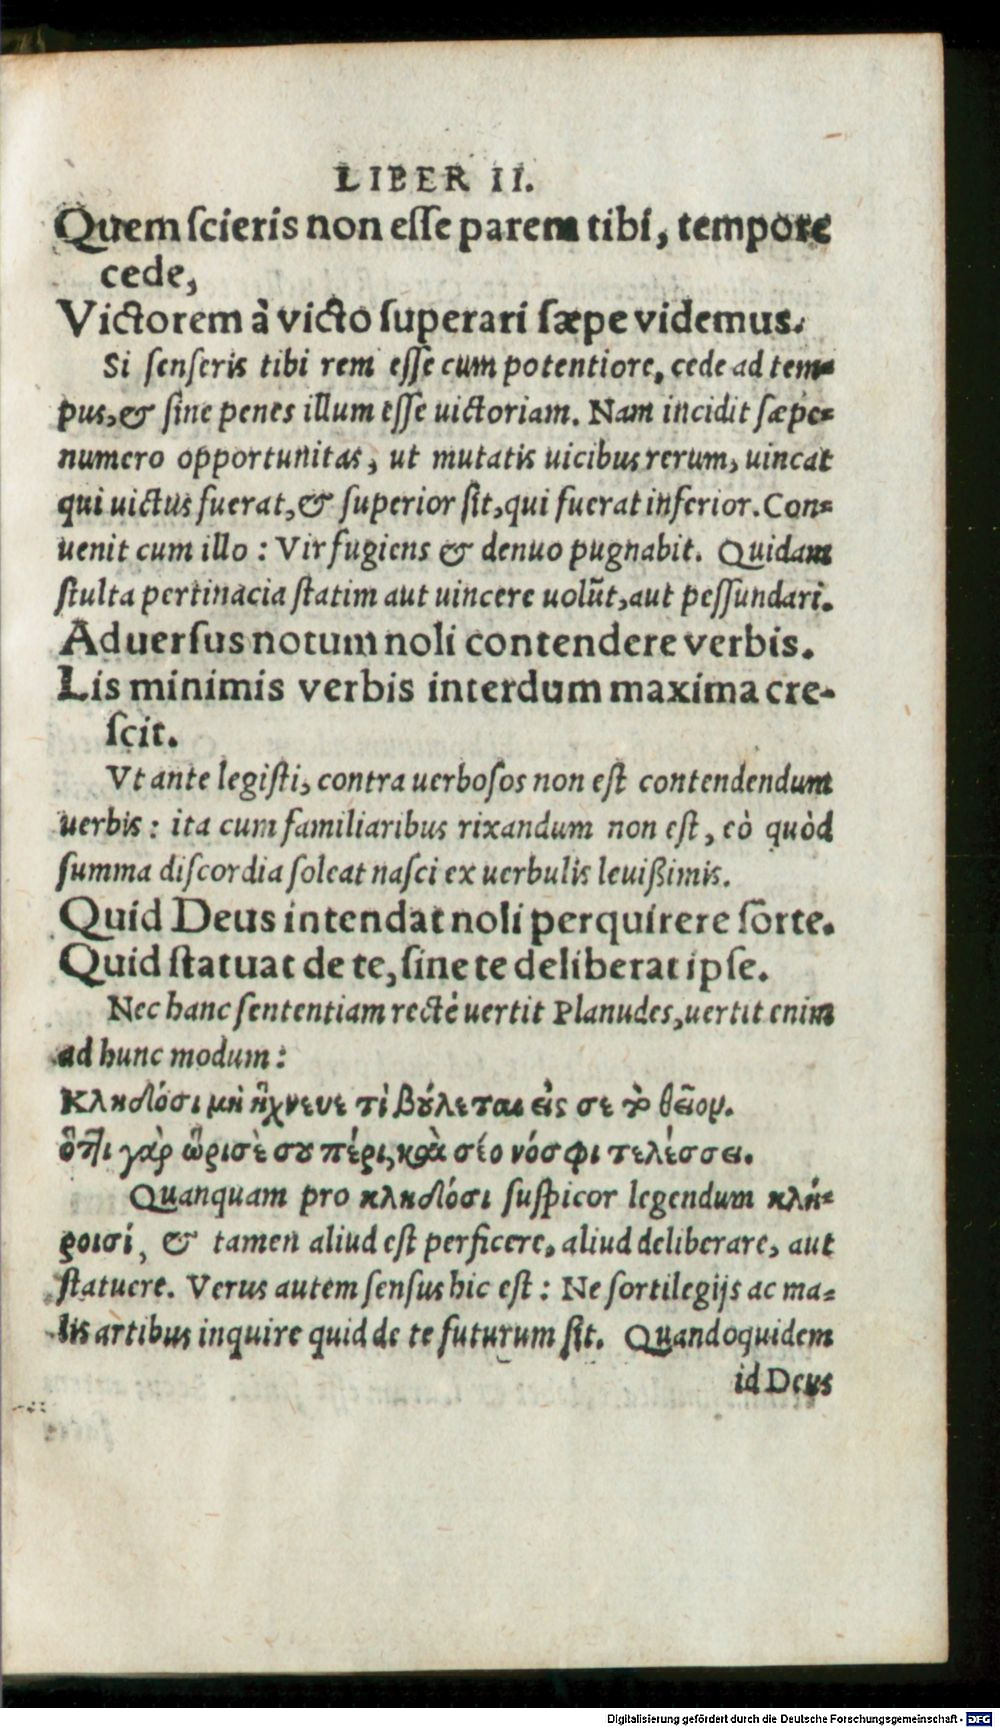 LIBER II.
Quem ſcieris non eſſe parem tibi, tempore
cede,
Victorem à victo ſuperari ſæpe videmus.
Si ſenſeris tibi rem eſſe cum potentiore, cede ad tem-
pus, & ſine penes illum eſſe uictoriam. Nam incidit ſæpe-
numero opportunitas, ut mutatis uicibus rerum, uincat
qui uictus fuerat, & ſuperior ſit, qui fuerat inferior. Con-
uenit cum illo : Vir fugiens & denuo pugnabit. Quidam
ſtulta pertinacia ſtatim aut uincere uolũt, aut peſſundari.
Aduerſus notum noli contendere verbis.
Lis minimis verbis interdum maxima cre-
ſcit.
Vt ante legiſti, contra uerboſos non eſt contendendum
uerbis : ita cum familiaribus rixandum non eſt, eò quòd
ſumma diſcordia ſoleat naſci ex uerbulis leuißimis.
Quid Deus intendat noli perquirere ſorte.
Quid ſtatuat de te, ſine te deliberat ipſe.
Nec hanc ſententiam rectè uertit Planudes, uertit enim
ad hunc modum :
Κληδόσι μὴ ἤχνευε τὶ βούλεται εἰς σε τὸ θεῖον.
ὅττι γὰρ ὥρισὲ σου πέρι, καὶ σέο νόσφι τελέσσει.
Quanquam pro κληδόσι ſuſpicor legendum κλή-
ροισί, & tamen aliud eſt perficere, aliud deliberare, aut
ſtatuere. Verus autem ſenſus hic eſt : Ne ſortilegijs ac ma-
lis artibus inquire quid de te futurum ſit. Quandoquidem
id Deus
Digitalisierung gefördert durch die Deutsche Forschungsgemeinschaft - DFG